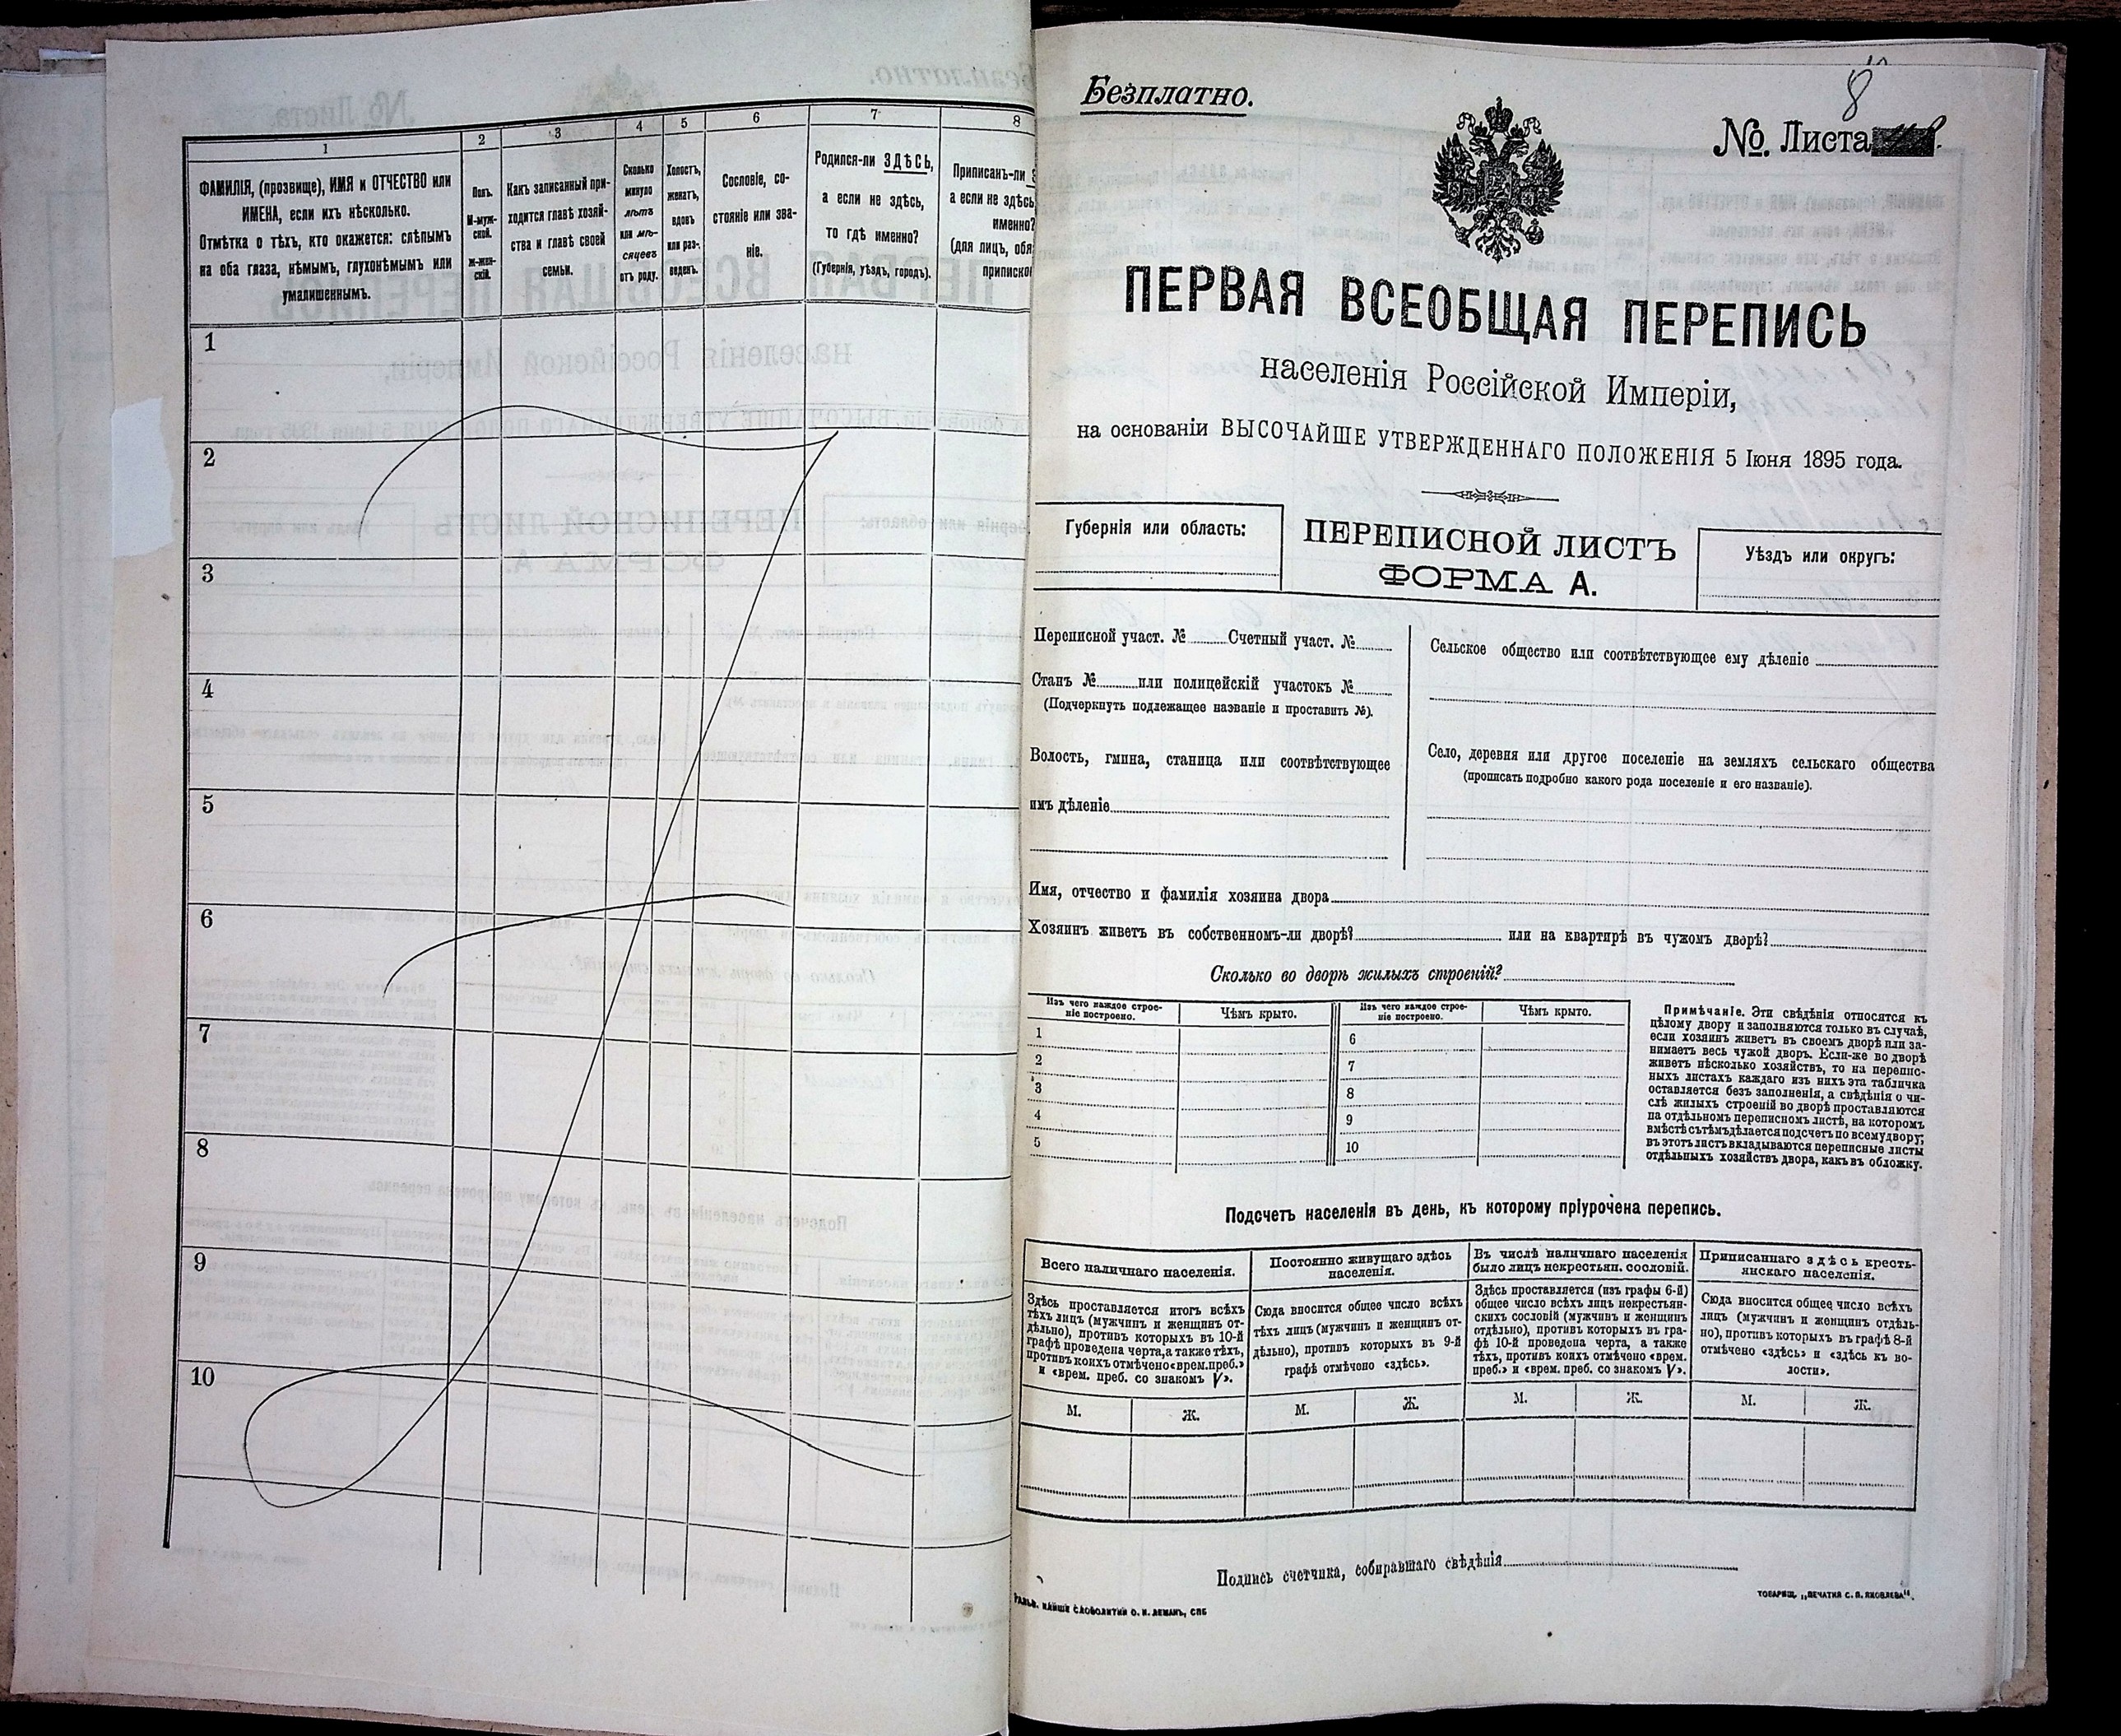 1
2
3
4
5
6
7
8
ФАМИЛІЯ, (прозвище), ИМЯ и ОТЧЕСТВО или
ИМЕНА, если ихъ нѣсколько.
Отмѣтка о тѣхъ, кто окажется: слѣпымъ
на оба глаза, нѣмымъ, глухонѣмымъ или
умалишеннымъ.
Полъ.
М-муж-
ской.
ж-жен-
скій.
Какъ записанный при-
ходится главѣ хозяй-
ства и главѣ своей
семьи.
Сколько
минуло
лѣтъ
или мѣ-
сяцевъ
отъ роду.
Холостъ,
женатъ,
вдовъ
или раз-
веденъ.
Сословіе, со-
стояніе или зва-
ніе.
Родился-ли ЗДѢСЬ,
а если не здѣсь,
то гдѣ именно?
(Губернія, уѣздъ, городъ).
Приписанъ-ли
а если не здѣсь
именно?
(для лицъ, обя
приписко
1
2
3
4
5
6
7
8
9
10
Безплатно.
8
№. Листа
ПЕРВАЯ ВСЕОБЩАЯ ПЕРЕПИСЬ
населенія Россійской Имперіи,
на основаніи ВЫСОЧАЙШЕ УТВЕРЖДЕННАГО ПОЛОЖЕНІЯ 5 Іюня 1895 года.
Губернія или область:
ПЕРЕПИСНОЙ ЛИСТЪ
ФОРМА А.
Уѣздъ или округъ:
Переписной участ. № Счетный участ. №
Станъ № или полицейскій участокъ №
(Подчеркнуть подлежащее названіе и проставить №).
Волость, гмина, станица или соотвѣтствующее
имъ дѣленіе
Сельское общество или соотвѣтствующее ему дѣленіе
Село, деревня или другое поселеніе на земляхъ сельскаго общества
(прописать подробно какого рода поселеніе и его названіе).
Имя, отчество и фамилія хозяина двора
Хозяинъ живетъ въ собственномъ-ли дворѣ? или на квартирѣ въ чужомъ дворѣ?
Сколько во дворѣ жилыхъ строеній?
Изъ чего каждое строе-
ніе построено.
Чѣмъ крыто.
Изъ чего каждое строе-
ніе построено.
Чѣмъ крыто.
1
2
3
4
5
6
7
8
9
10
Примѣчаніе. Эти свѣдѣнія относятся къ
цѣлому двору и заполняются только въ случаѣ,
если хозяинъ живетъ въ своемъ дворѣ или за-
нимаетъ весь чужой дворъ. Если-же во дворѣ
живетъ нѣсколько хозяйствъ, то на перепис-
ныхъ листахъ каждаго изъ нихъ эта табличка
оставляется безъ заполненія, а свѣдѣнія о чи-
слѣ жилыхъ строеній во дворѣ проставляются
на отдѣльномъ переписномъ листѣ, на которомъ
вмѣстѣ съ тѣмъ дѣлается подсчетъ по всему двору;
въ этотъ листъ вкладываются переписные листы
отдѣльныхъ хозяйствъ двора, какъ въ обложку.
Подсчетъ населенія въ день, къ которому пріурочена перепись.
Всего наличнаго населенія.
Постоянно живущаго здѣсь
населенія.
Въ числѣ наличнаго населенія
было лицъ некрестьян. сословій.
Приписаннаго здѣсь кресть-
янскаго населенія.
Здѣсь проставляется итогъ всѣхъ
тѣхъ лицъ (мужчинъ и женщинъ от-
дѣльно), противъ которыхъ въ 10-й
графѣ проведена черта, а также тѣхъ,
противъ коихъ отмѣчено «врем. преб.»
и «врем. преб. со знакомъ V».
Сюда вносится общее число всѣхъ
тѣхъ лицъ (мужчинъ и женщинъ от-
дѣльно), противъ которыхъ въ 9-й
графѣ отмѣчено «здѣсь».
Здѣсь проставляется (изъ графы 6-й)
общее число всѣхъ лицъ некрестьян-
скихъ сословій (мужчинъ и женщинъ
отдѣльно), противъ которыхъ въ гра-
фѣ 10-й проведена черта, а также
тѣхъ, противъ коихъ отмѣчено «врем.
преб.» и «врем. преб. со знакомъ V».
Сюда вносится общее число всѣхъ
лицъ (мужчинъ и женщинъ отдѣль-
но), противъ которыхъ въ графѣ 8-й
отмѣчено «здѣсь» и «здѣсь къ во-
лости».
М. Ж. М. Ж. М. Ж. М. Ж.
Подпись счетчика, собиравшаго свѣдѣнія
СЛОВОЛИТНИ О. И. ЛЕМАНЪ, СПБ
ТОВАРИЩ. „ПЕЧАТНЯ С. П. ЯКОВЛЕВА“.